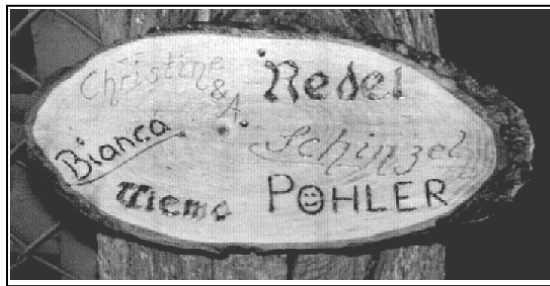 Christine
& A.
Redel
Bianca
Schinzel
Tiemo
POHLER